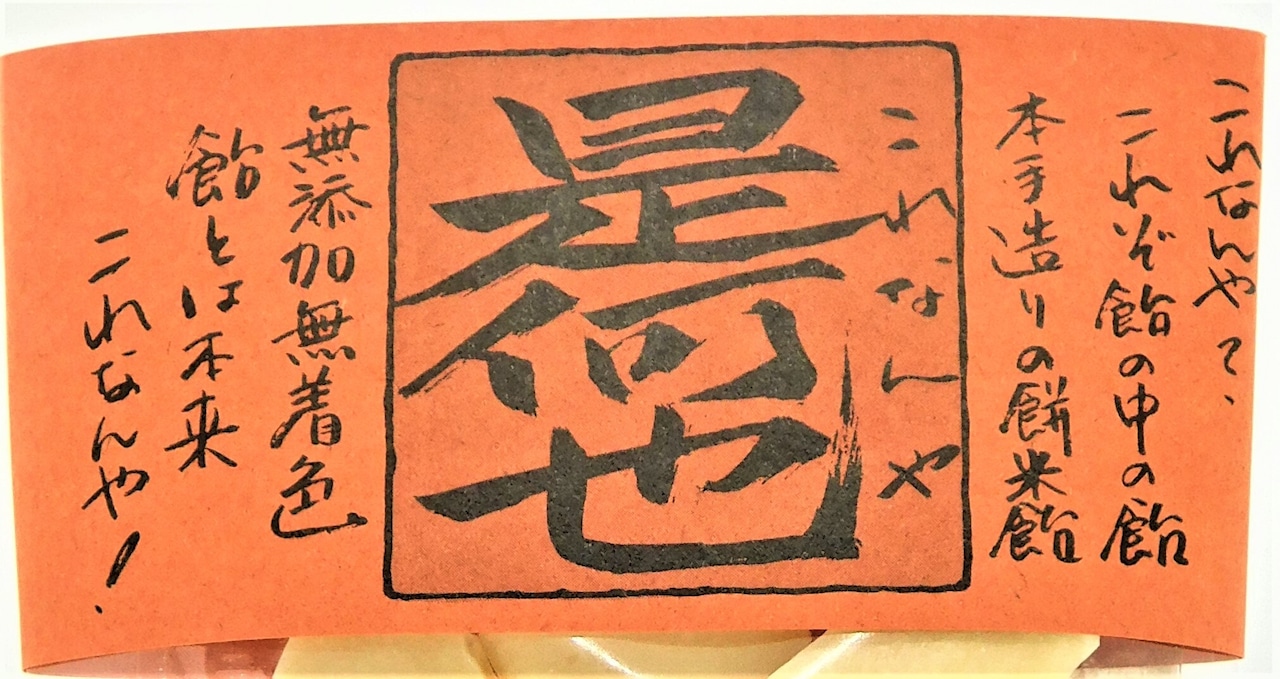 これなんやて、
これぞ飴の中の飴
本手造りの餅米飴
これなんや
是何也
無添加無着色
飴とは本来
これなんや!